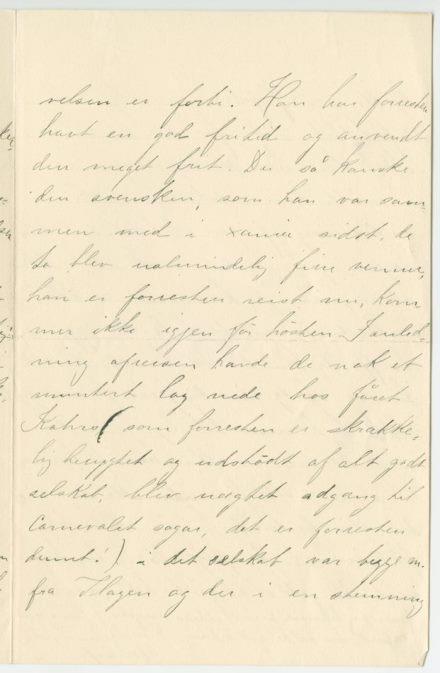 velsen er forbi. Han har forresten
havt en god fritid og anvendt
den meget frit. Du så kanske
den svensken, som han var sam-
men med i xania sidst, de
to blev ualmindelig fine venner,
han er forresten reist nu, kom
mer ikke igjen før høsten. I anled-
ning afreisen havde de nok et
muntert lag nede hos
Kahrs (som forresten er skrække-
lig berygtet og udstødt af alt godt
selskab, blev nægtet adgang til
Carnevalet sogar, det er forresten
dumt!) i det selskab var begge
fra Hagen og der i en stemning